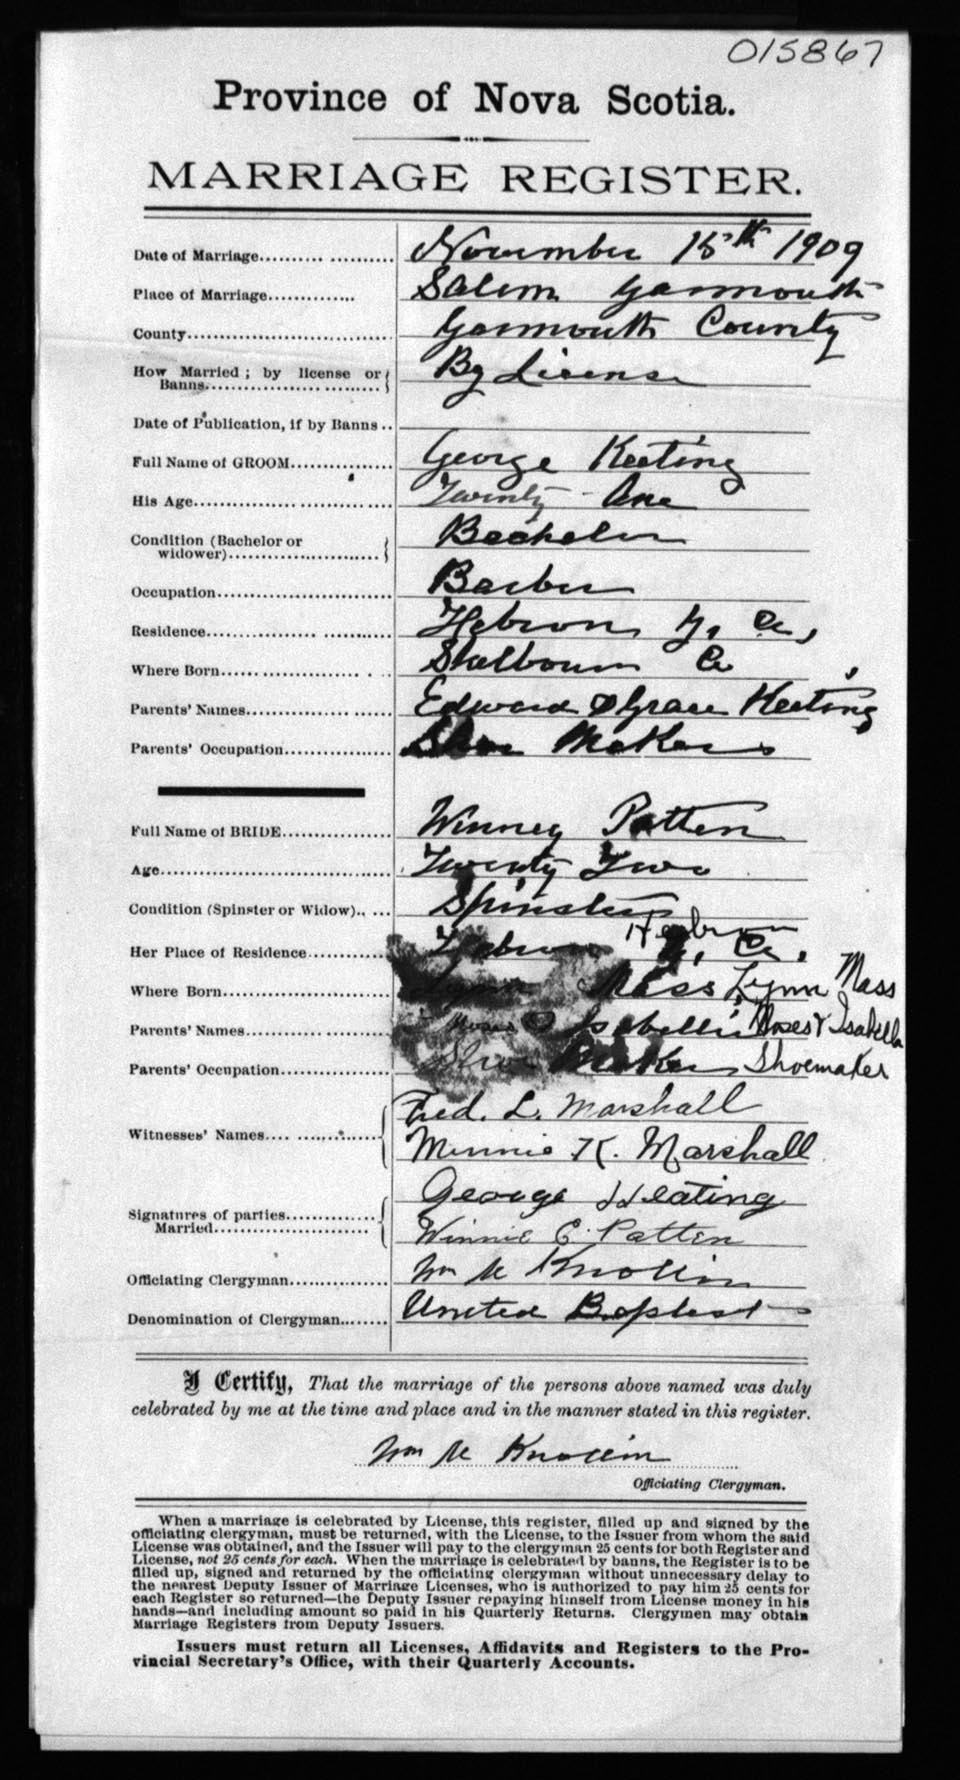 015867
Province of Nova Scotia.
MARRIAGE REGISTER.
Date of Marriage.................... November 15th 1909
Place of Marriage............. Salem Yarmouth
County............................. Yarmouth County
How Married; by license or By License
Banns........................
Date of Publication, if by Banns..
Full Name of GROOM............... George Keeting
His Age............................. Twenty-One
Condition (Bachelor or Bachelor
widower)........................
Occupation.......................... Barber
Residence........................... Hebron Y. Co,
Where Born...................... Shelbourn Co
Parents' Names..................... Edward & Grace Keeting
Parents' Occupation................ Shoe Makers
Full Name of BRIDE................ Winney Patten
Age.................................. Twenty Two
Condition (Spinster or Widow)..... Spinster
Hebron
Her Place of Residence............ Hebron Y. Co.
Where Born......................... Lynn Mass Lynn Mass
Parents' Names..................... Moses & Isabella Moses & Isabella
Parents' Occupation................ Shoe Maker Shoemaker
Fred. L. Marshall
Witnesses' Names.................. Minnie K. Marshall
George Keating
Signatures of parties...............
Married....................... Winnie E Patten
Officiating Clergyman............... Wm M Knollin
Denomination of Clergyman........ United Baptist
I Certify, That the marriage of the persons above named was duly
celebrated by me at the time and place and in the manner stated in this register.
Wm M Knollin
Officiating Clergyman.
When a marriage is celebrated by License, this register, filled up and signed by the
officiating clergyman, must be returned, with the License, to the Issuer from whom the said
License was obtained, and the Issuer will pay to the clergyman 25 cents for both Register and
License, not 25 cents for each. When the marriage is celebrated by banns, the Register is to be
filled up, signed and returned by the officiating clergyman without unnecessary delay to
the nearest Deputy Issuer of Marriage Licenses, who is authorized to pay him 25 cents for
each Register so returned—the Deputy Issuer repaying himself from License money in his
hands—and including amount so paid in his Quarterly Returns. Clergymen may obtain
Marriage Registers from Deputy Issuers.
Issuers must return all Licenses, Affidavits and Registers to the Pro-
vincial Secretary's Office, with their Quarterly Accounts.